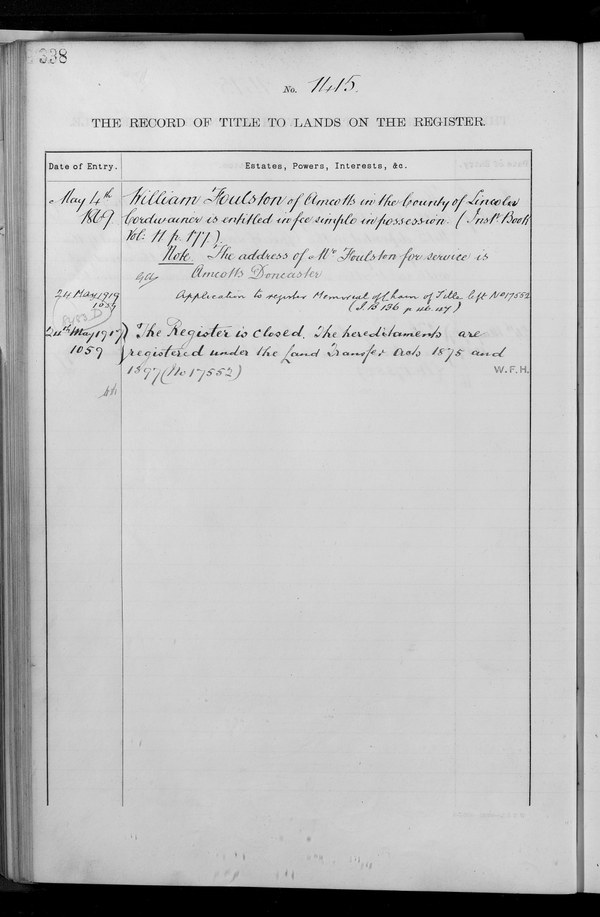 338
No. 1415.
THE RECORD OF TITLE TO LANDS ON THE REGISTER.
Date of Entry.
Estates, Powers, Interests, &c.
May 4th
1869
William Foulston of Amcotts in the County of Lincoln
Cordwainer is entitled in fee simple in possession. (Inst. Book
Vol: 11 p. 177).
Note. The address of Mr Foulston for service is
Amcotts Doncaster
24 May 1919
1059
Application to register Memorial of Chain of Title left No 17552
(I.B 136 p 46.47)
24th May 1919
1059
The Register is closed. The hereditaments are
registered under the Land Transfer Acts 1875 and
1897 (No 17552)
W.F.H.